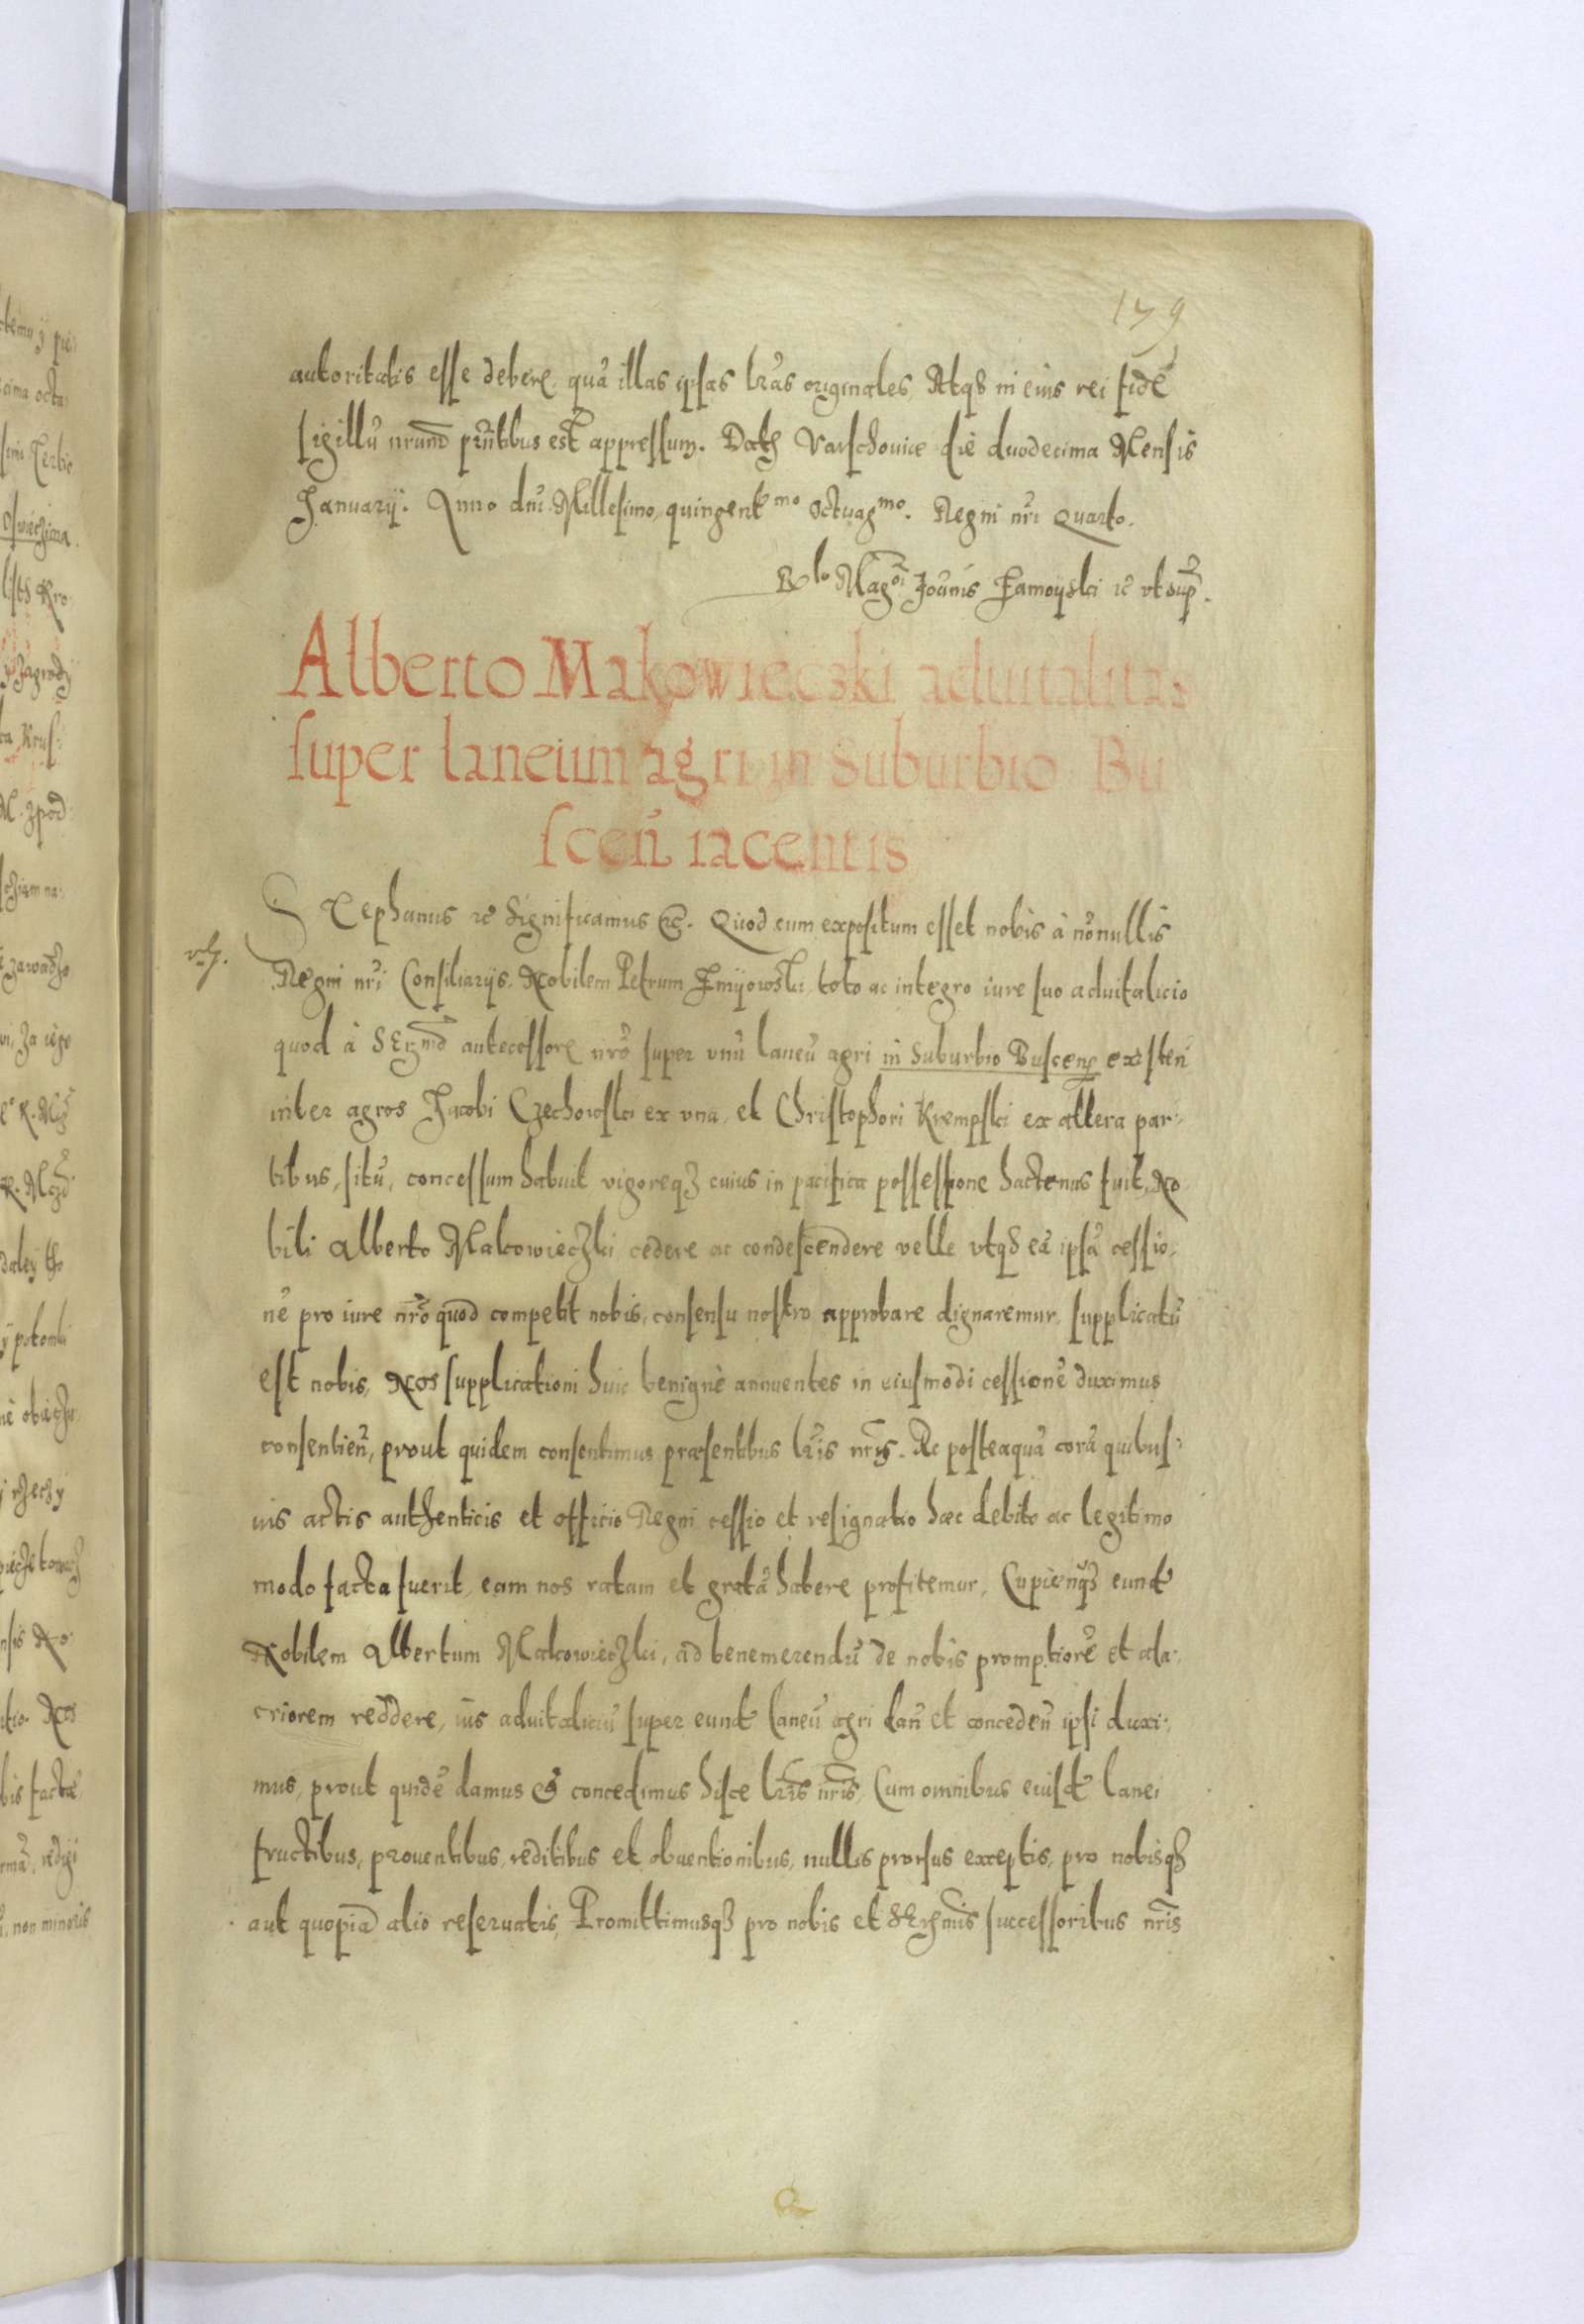 179
autoritatis esse debere, quā illas ipsas lr̄as originales, Atqȝ in eius rei fidē
sigillū nrūm pn̄tibus est appressum. Dat Varschouiæ die duodecima Mensis
Januarÿ. Anno dnī Millesimo, quingentmo octuagmo. Regni nrī Quarto.
Rlo Magci Joānis Zamoyski ꝛc vt supr̄.
Alberto Makowieczki aduitalitas
super laneum agri in Suburbio Bu
scen̄ iacentis
Stephanus ꝛc Significamus ꝛc. Quod cum expositum esset nobis à nōnullis
Regni nrī Consiliarÿs, Nobilem Petrum Zmijowski, toto ac integro iure suo aduitalicio
quod à Sermo antecessore nrō super vnū laneū agri in Suburbio Buscen̄ existen̄
inter agros Jacobi Czechowski ex vna, et Christophori Krempski ex altera par-
tibus, sitū, concessum habuit, vigoreqȝ cuius in pacifica possessione hactenus fuit, No
bili Alberto Makowieczki cedere ac condescendere velle vtqȝ eā ipsā cessio-
nē pro iure nrō quod competit nobis, consensu nostro approbare dignaremur, supplicatū
est nobis, Nos supplicationi huic benignè annuentes in eiusmodi cessionē duximus
consentien̄, prout quidem consentimus præsentibus lr̄is nrīs. Ac posteaquā corā quibus-
uis actis authenticis et officio Regni cessio et resignatio hæc debito ac legitimo
modo facta fuerit, eam nos ratam et gratā habere profitemur, Cupien̄qȝ eund
Nobilem Albertum Makowieczki, ad benemerendū de nobis promptiorē et ala-
criorem reddere, ius aduitaliciū super eund laneū agri dan̄ et conceden̄ ipsi duxi-
mus, prout quidē damus et concedimus hisce lr̄is nrīs, Cum omnibus eiusd lanei
fructibus, prouentibus, reditibus et obuentionibus, nullis prorsus exceptis, pro nobisqȝ
aut quopiā alio reseruatis, Promittimusqȝ pro nobis et Sermis successoribus nrīs